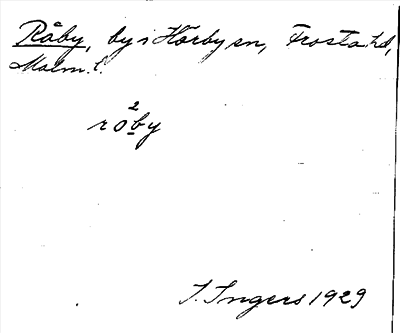 Råby, by i Hörby sn, Frosta hd,
Malm. l.
2
roby
I. Ingers 1929